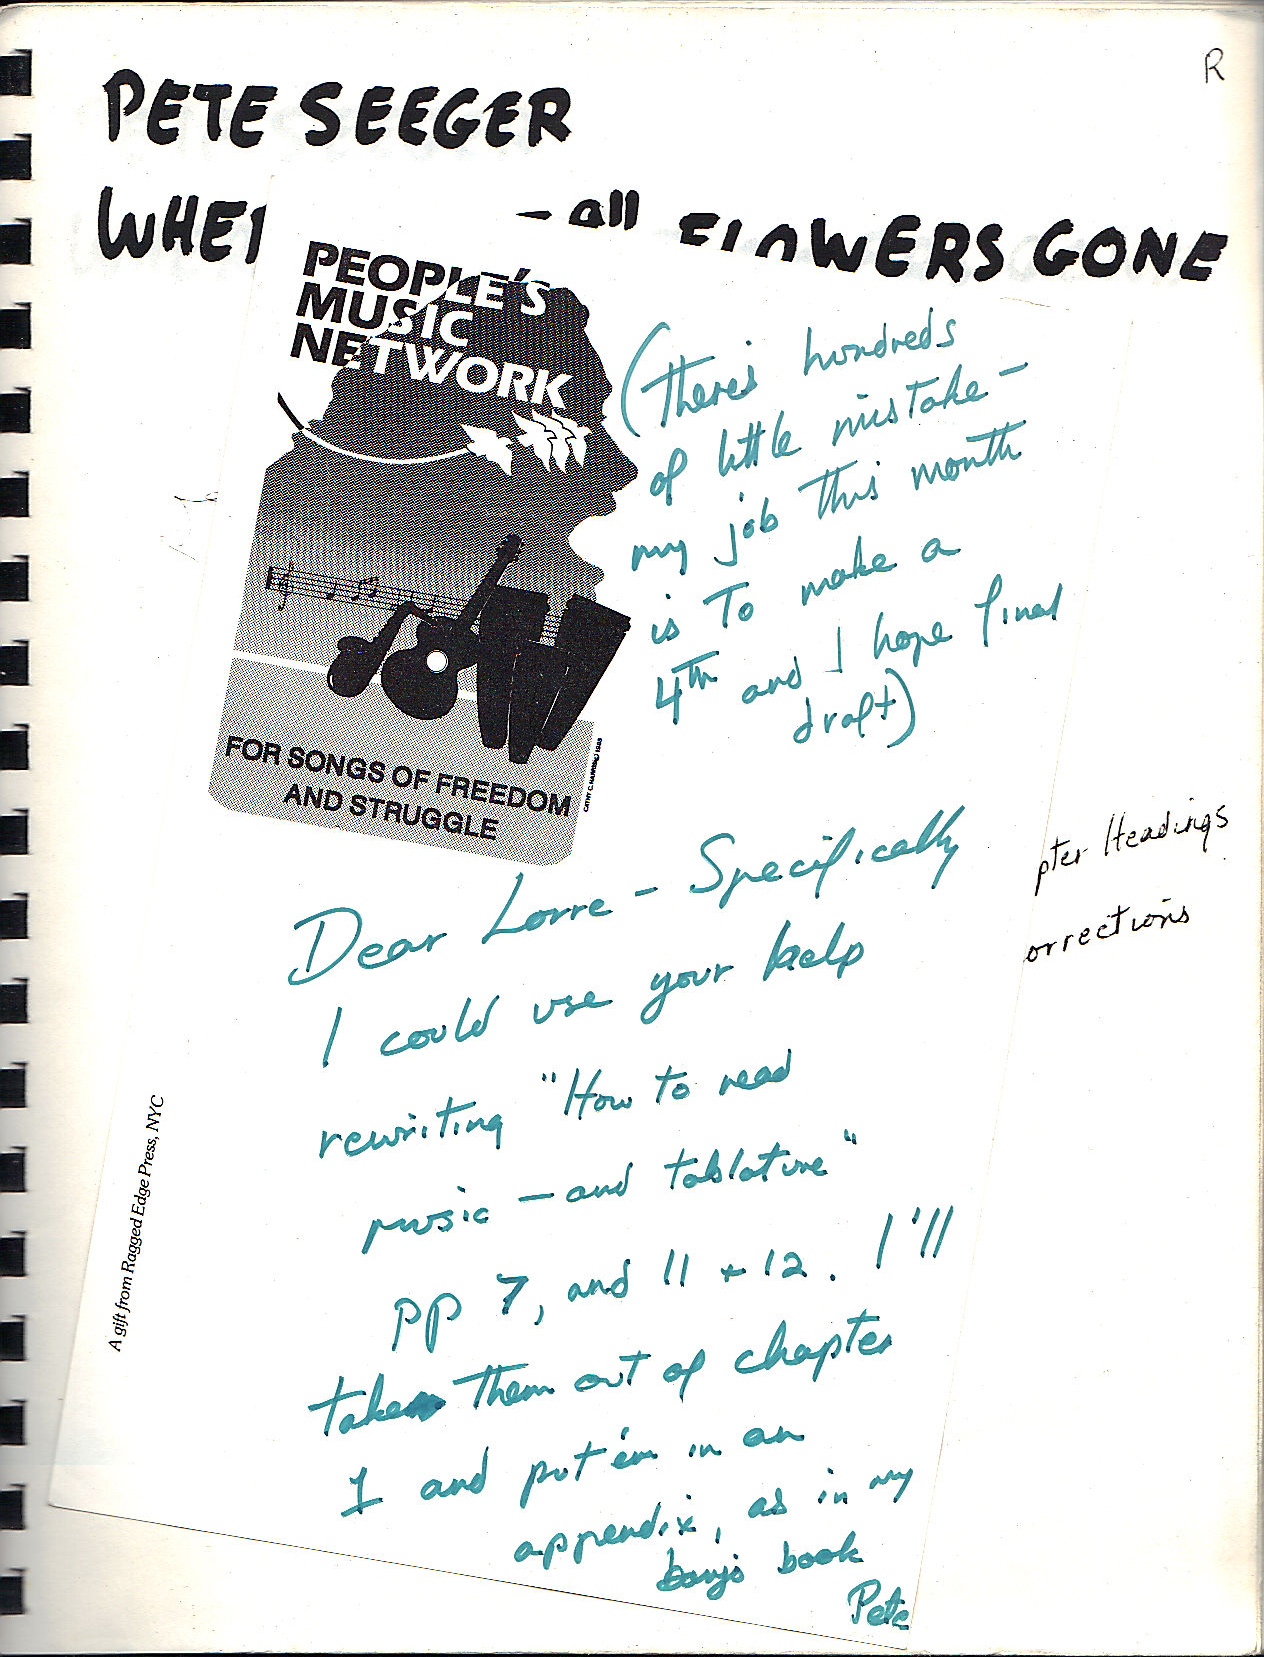 R
PETE SEEGER
WHE
- all FLOWERS GONE
PEOPLE'S
MUSIC
NETWORK
FOR SONGS OF FREEDOM
AND STRUGGLE
(there's hundreds
of little mistake -
my job this month
is to make a
4th and I hope final
draft)
pter Headings
orrections
Dear Lorre - Specifically
I could use your help
rewriting "How to read
music - and tablature"
pp 7, and 11 + 12. I'll
take them out of chapter
1 and put 'em in an
appendix, as in my
banjo book
Pete
A gift from Ragged Edge Press, NYC